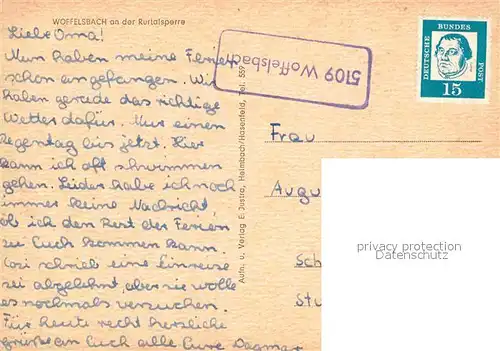 WOFFELSBACH an der Rurtalsperre
Liebe Oma!
Nun haben meine Ferien
schon angefangen. Wir
haben gerade das richtige
Wetter dafür. Nur einen
Regentag bis jetzt. Hier
kann ich oft schwimmen
gehen. Leider habe ich noch
immer keine Nachricht,
ob ich den Rest der Ferien
zu Euch kommen kann.
schrieb eine Einreise
sei abgelehnt, aber sie wolle
es nochmals versuchen.
Für heute recht herzliche
Grüße an Euch alle Eure Dagmar
Aufn. u. Verlag E. Justra, Heimbach/Hasenfeld, Tel. 559
5109 Woffelsbac
DEUTSCHE
BUNDES
POST
15
Frau
Augu
Sch
Stu
privacy protection
Datenschutz